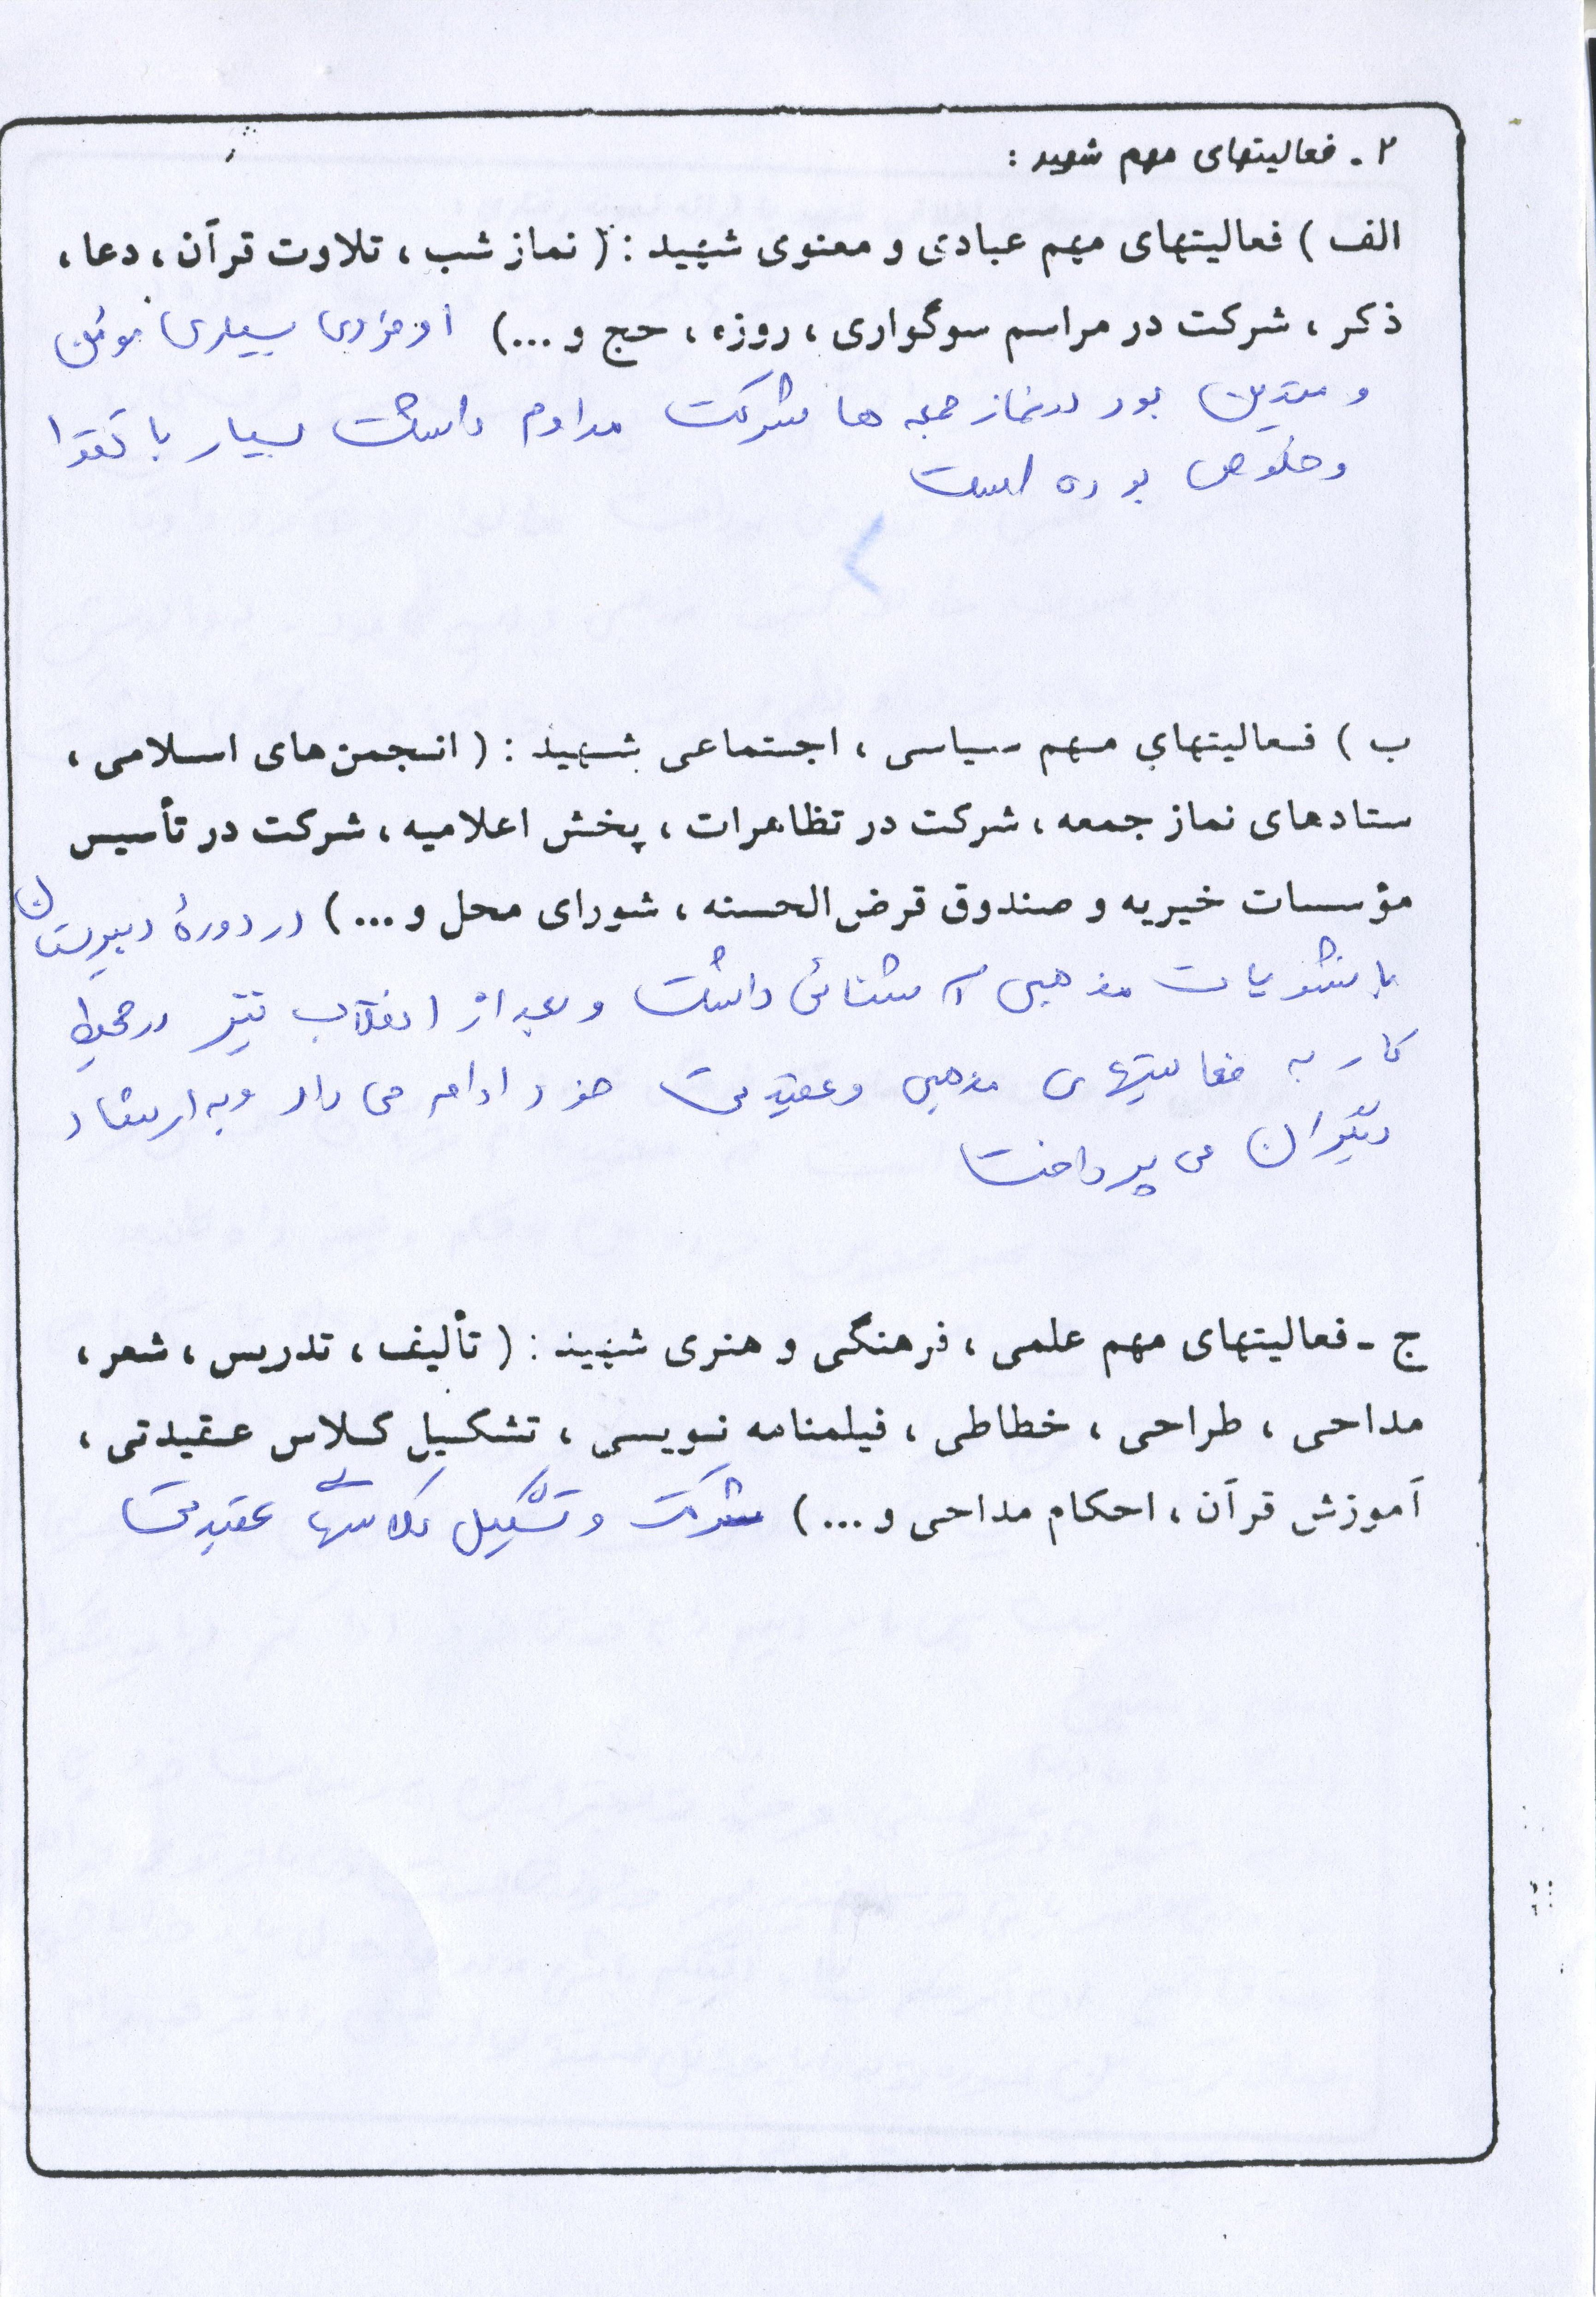 ۲ - فعالیتهای مهم شهید :
الف ) فعالیتهای مهم عبادی و معنوی شهید : ( نماز شب ، تلاوت قرآن ، دعا ،
ذکر ، شرکت در مراسم سوگواری ، روزه ، حج و ...) او فردی بسیاری مؤمن
و متدین بود در نماز جمعه ها شرکت مداوم داشت بسیار با تقوا
و خلوص بوده است
ب ) فعالیتهای مهم سیاسی ، اجتماعی شهید : ( انجمن‌های اسلامی ،
ستادهای نماز جمعه ، شرکت در تظاهرات ، پخش اعلامیه ، شرکت در تأسیس
مؤسسات خیریه و صندوق قرض‌الحسنه ، شورای محل و ...) در دورهٔ دبیرستان
با نشریات مذهبی آشنائی داشت و بعد از انقلاب نیز در محیط
کار به فعالیتهای مذهبی و عقیدتی خود ادامه می داد و به ارشاد
دیگران می پرداخت
ج - فعالیتهای مهم علمی ، فرهنگی و هنری شهید : ( تألیف ، تدریس ، شعر ،
مداحی ، طراحی ، خطاطی ، فیلمنامه نویسی ، تشکیل کلاس عقیدتی ،
آموزش قرآن ، احکام مداحی و ...) شرکت و تشکیل کلاسهای عقیدتی